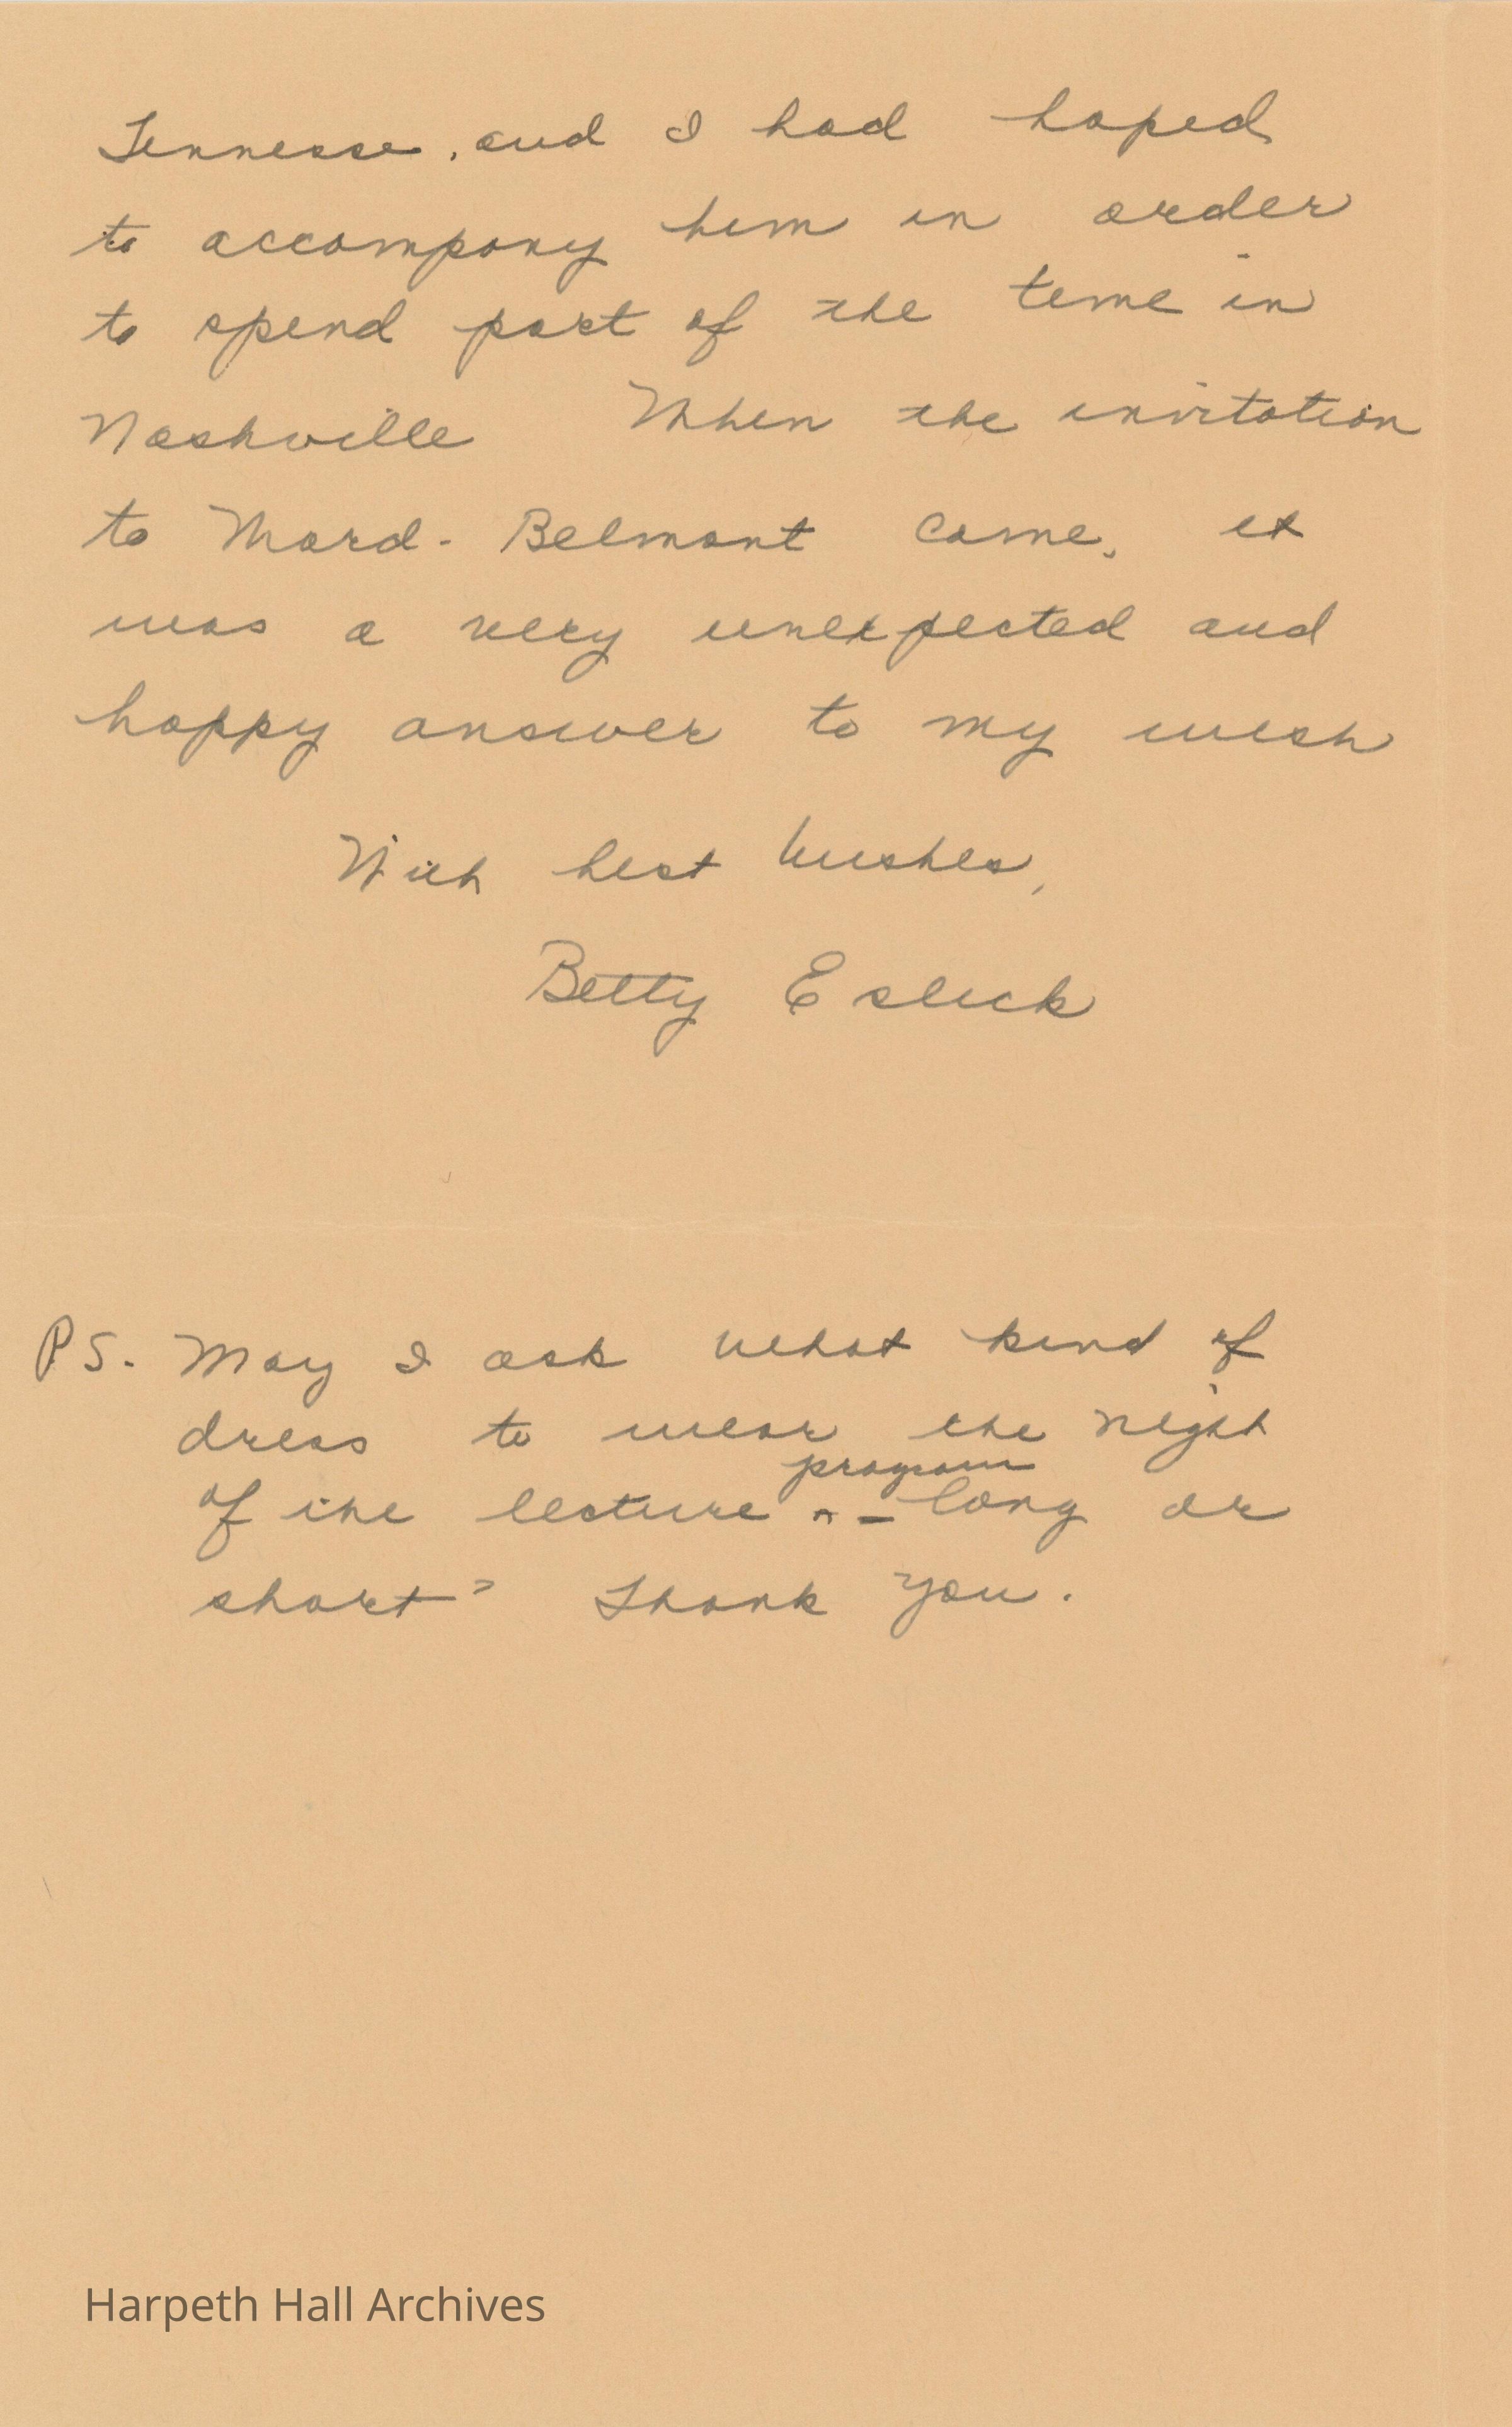 Tennessee, and I had hoped
to accompany him in order
to spend part of the time in
Nashville   When the invitation
to Ward-Belmont came, it
was a very unexpected and
happy answer to my wish
With best wishes,
Betty Eslick
P.S. May I ask what kind of
dress to wear the night
program
of the lecture ^ - long or
short? Thank you.
Harpeth Hall Archives